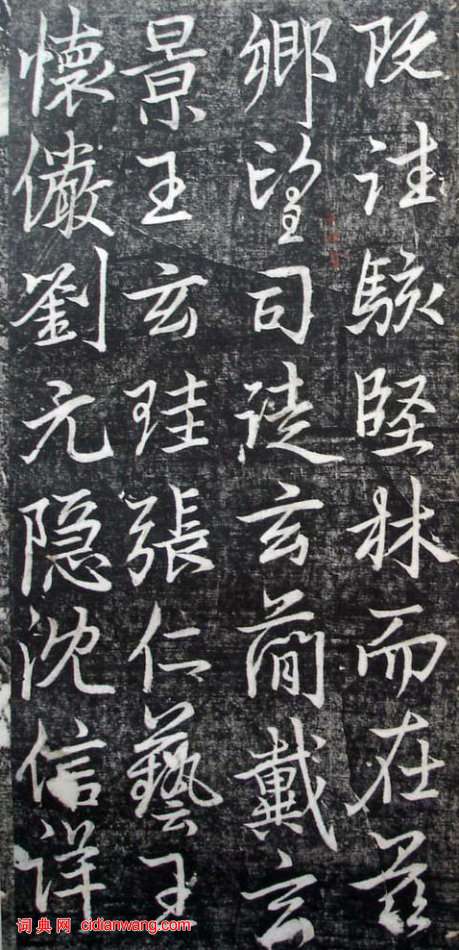 既詿駭堅林而在茲
鄉望司徒玄簡戴玄
景王玄珪張仁藝王
懷儼劉元隱沈信詳
词典网 cidianwang.com